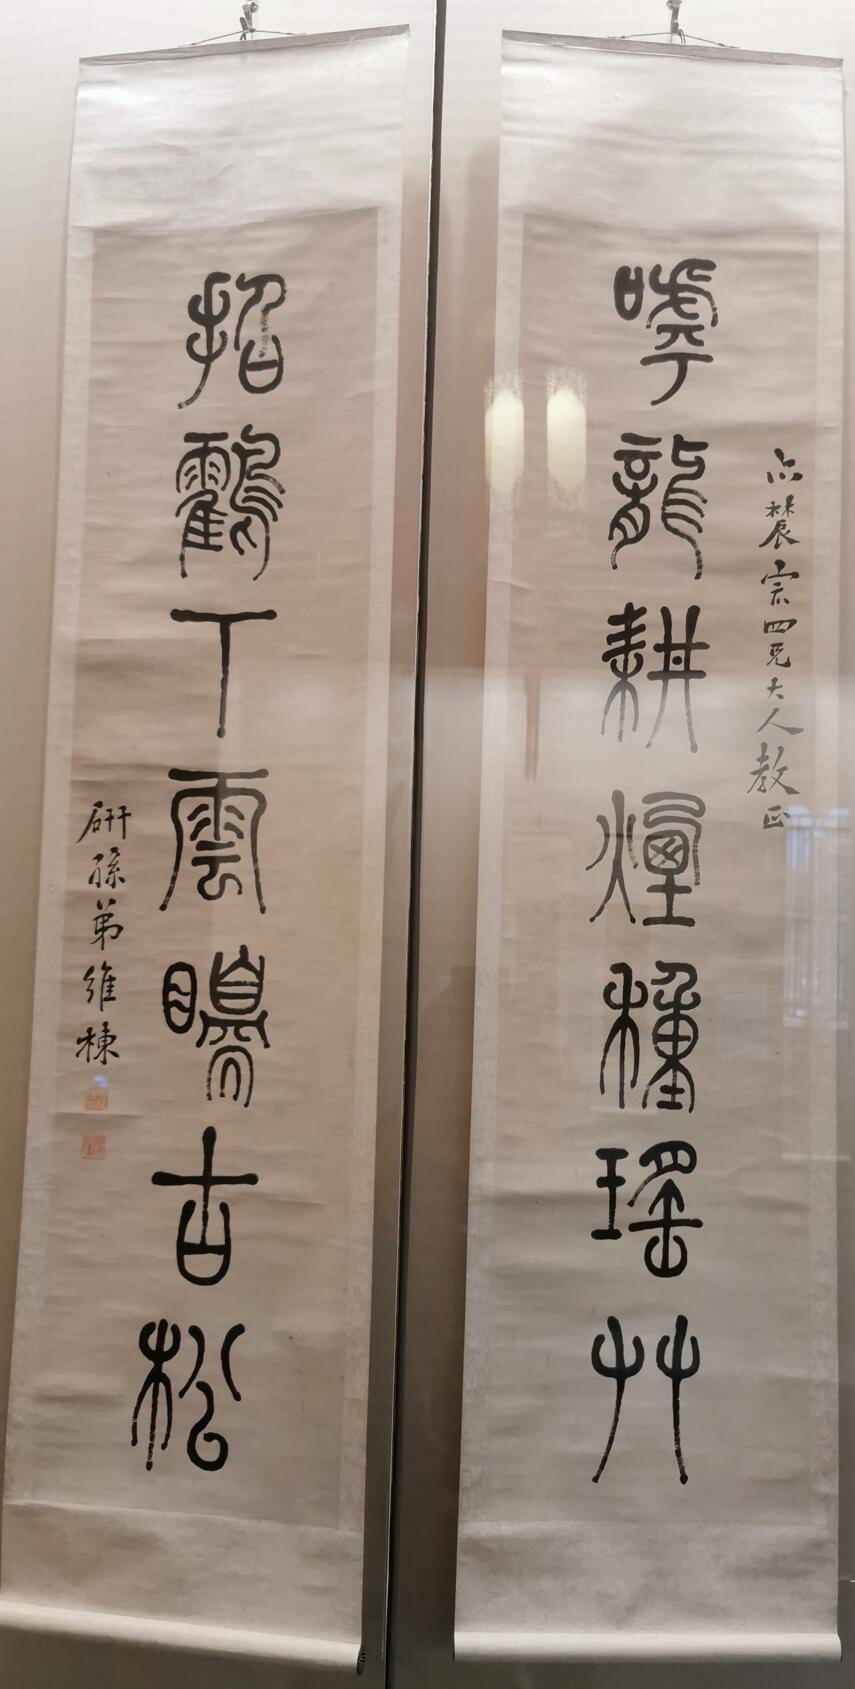 嘑龍耕煙種瑤艸
辳宗四兄大人教正
招鶴丅雲古松
研孫弟維棟